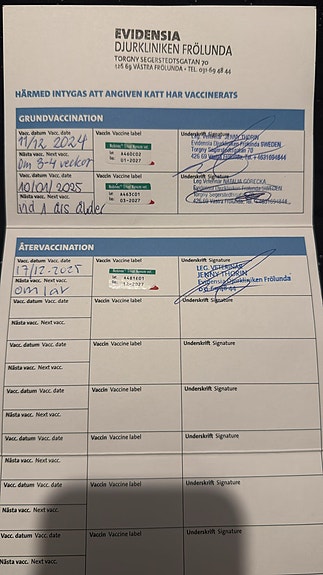 EVIDENSIA
DJURKLINIKEN FRÖLUNDA
TORGNY SEGERSTEDTSGATAN 70
426 69 VÄSTRA FRÖLUNDA • TEL. 031-69 48 44
HÄRMED INTYGAS ATT ANGIVEN KATT HAR VACCINERATS
GRUNDVACCINATION
Vacc. datum Vacc. date Vaccin Vaccine label Underskrift Signature
11/12 2024
Leg. Veterinär JENNY THORIN
Evidensia Djurkliniken Frölunda SWEDEN
Torgny Segerstedtsgatan 70
426 69 Västra Frölunda, Tel. +4631694844
Nästa vacc. Next vacc.
A460C02
01-2027
Om 3-4 veckor
Vacc. datum Vacc. date Vaccin Vaccine label Underskrift Signature
10/01/2025
Leg. Veterinär NATALIA GORECKA
Evidensia Djurkliniken Frölunda SWEDEN
Torgny Segerstedtsgatan 70
426 69 Västra Frölunda, Tel. +4631694844
Nästa vacc. Next vacc.
A463C01
03-2027
vid 1 års ålder
ÅTERVACCINATION
Vacc. datum Vacc. date Vaccin Vaccine label Underskrift Signature
17/12-2025
LEG. VETERINÄR
JENNY THORIN
Evidensia Djurkliniken Frölunda
031-69 48 44
Nästa vacc. Next vacc.
A481E01
12-2027
om 1 år
Vacc. datum Vacc. date Vaccin Vaccine label Underskrift Signature
Nästa vacc. Next vacc.
Vacc. datum Vacc. date Vaccin Vaccine label Underskrift Signature
Nästa vacc. Next vacc.
Vacc. datum Vacc. date Vaccin Vaccine label Underskrift Signature
Nästa vacc. Next vacc.
Vacc. datum Vacc. date Vaccin Vaccine label Underskrift Signature
Nästa vacc. Next vacc.
Vacc. datum Vacc. date Vaccin Vaccine label Underskrift Signature
Nästa vacc. Next vacc.
Vacc. datum Vacc. date Vaccin Vaccine label Underskrift Signature